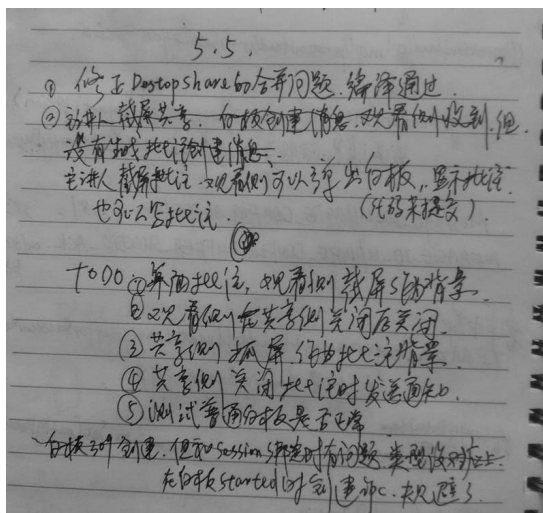 5.5.
① 修正DestopShare的合并问题. 编译通过.
② 主讲人截屏共享. 白板创建消息. 观看侧收到. 但
没有生成批注创建消息.
主讲人截屏批注. 观看侧可以弹出白板, 显示批注.
也可以写批注. (代码未提交).
TODO ① 桌面批注, 观看侧截屏当背景.
② 观看侧在共享侧关闭后关闭.
③ 共享侧抓屏作为批注背景.
④ 共享侧关闭批注时发送通知.
⑤ 测试普通白板是否正常
白板可创建. 但和session绑定时有问题. 类型没对应上.
在白板started时创建 规避了.